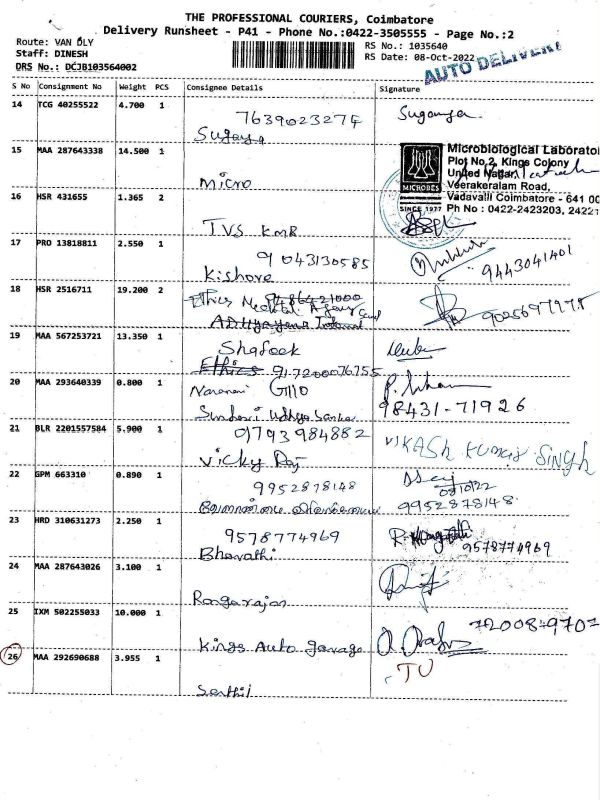 THE PROFESSIONAL COURIERS, Coimbatore
Delivery Runsheet - P41 - Phone No.:0422-3505555 - Page No.:2
Route: VAN DLY
Staff: DINESH
DRS No.: DCJB103564002
RS No.: 1035640
RS Date: 08-Oct-2022
AUTO DELIVERY
S No Consignment No Weight PCS Consignee Details Signature
14 TCG 40255522 4.700 1
7639023274
Suganya
15 MAA 287643338 14.500 1
Micro
Microbiological Laborato
Plot No.2, Kings Colony
United Nagar,
Veerakeralam Road,
Vadavalli Coimbatore - 641 00
Ph No : 0422-2423203, 24221
MICROBES
SINCE 1977
16 HSR 431655 1.365 2
TVS KMR
17 PRO 13818811 2.550 1
9043130585
Kishore
9443041401
18 HSR 2516711 19.200 2
Ethics Medical Agency
9025697975
19 MAA 567253721 13.350 1
Shafeek
Ethics 917200076755
20 MAA 293640339 0.800 1
98431-71926
21 BLR 2201557584 5.900 1
01793984882
Vicky Raj
VIKASH KUMAR SINGH
22 GPM 663310 0.890 1
9952878148
08/10/22
9952878148
23 HRD 310631273 2.250 1
9578774969
Bharathi
9578774969
24 MAA 287643026 3.100 1
Rangarajan
25 IXM 502255033 10.000 1
Kings Auto garage
26 MAA 292690688 3.955 1
TU
Senthil